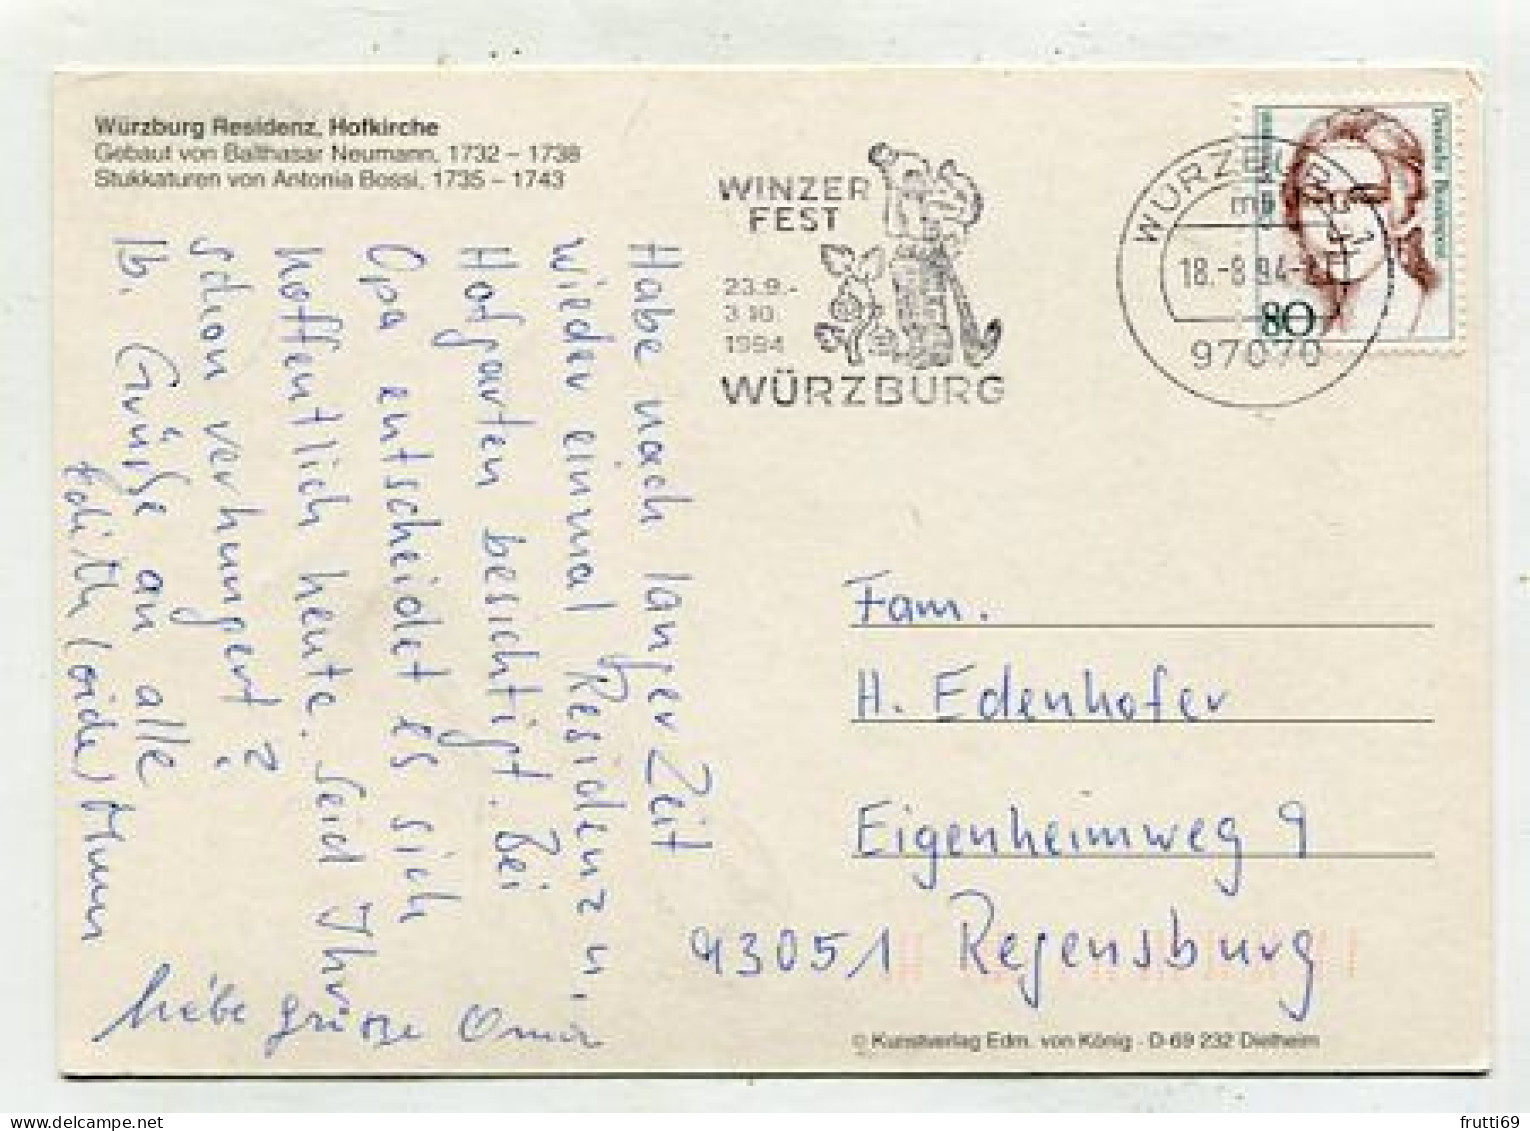 Würzburg Residenz, Hofkirche
Gebaut von Balthasar Neumann, 1732 – 1738
Stukkaturen von Antonia Bossi, 1735 – 1743
Habe nach langer Zeit
wieder einmal Residenz u.
Hofgarten besichtigt. Bei
Opa entscheidet es sich
hoffentlich heute. Seid Ihr
schon verhungert?
lb. Grüße an alle
Edith
liebe grüsse Oma
WINZER
FEST
23.9.-
3.10.
1994
WÜRZBURG
WÜRZBURG 1
18.-8.94
97070
Deutsche Bundespost
80
Fam.
H. Edenhofer
Eigenheimweg 9
93051 Regensburg
© Kunstverlag Edm. von König · D-69 232 Dielheim
frutti69